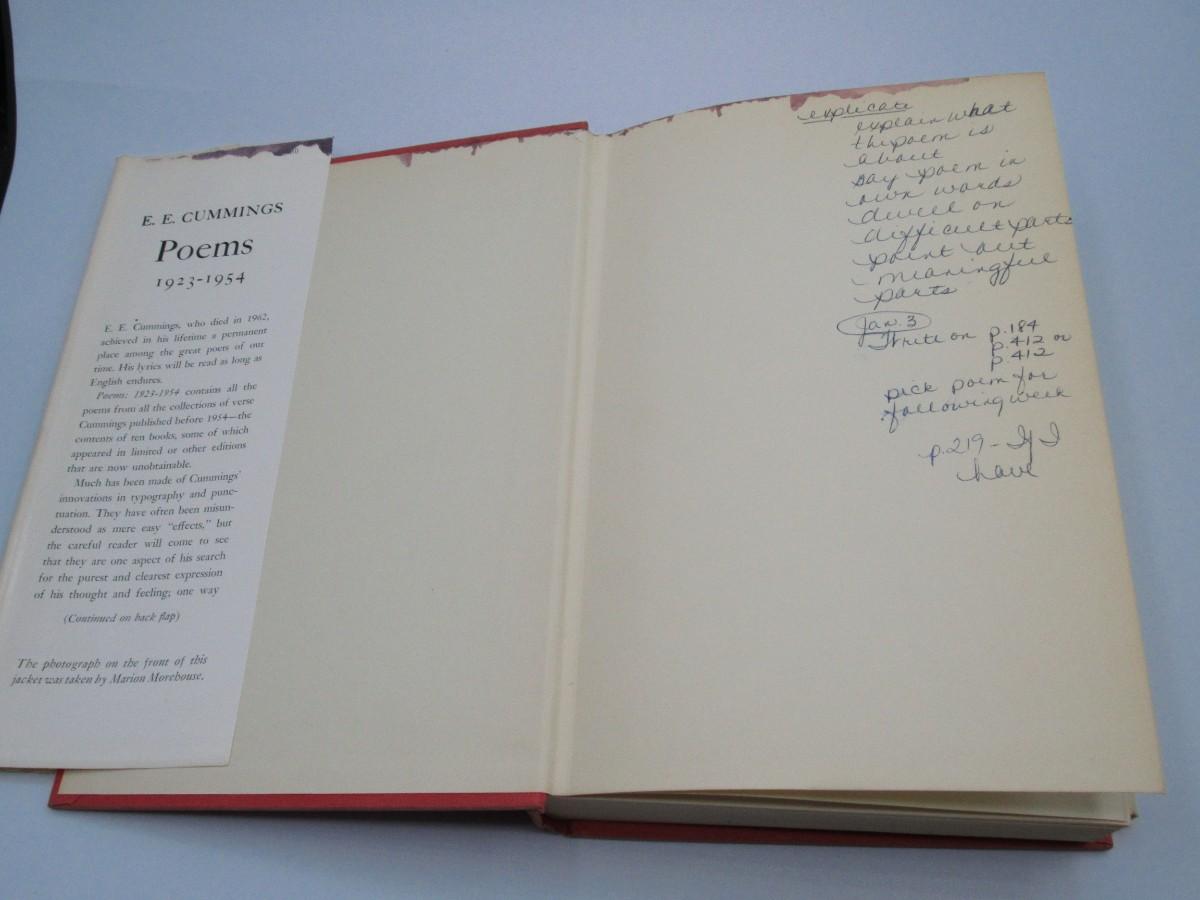 E. E. CUMMINGS
Poems
1923-1954
E. E. Cummings, who died in 1962,
achieved in his lifetime a permanent
place among the great poets of our
time. His lyrics will be read as long as
English endures.
Poems: 1923-1954 contains all the
poems from all the collections of verse
Cummings published before 1954—the
contents of ten books, some of which
appeared in limited or other editions
that are now unobtainable.
Much has been made of Cummings'
innovations in typography and punc-
tuation. They have often been misun-
derstood as mere easy "effects," but
the careful reader will come to see
that they are one aspect of his search
for the purest and clearest expression
of his thought and feeling; one way
(Continued on back flap)
The photograph on the front of this
jacket was taken by Marion Morehouse.
explicate
explain what
the poem is
about
say poem in
own words
dwell on
difficult parts
point out
meaningful
parts
Jan. 3
Write on p.184
p.412 or
p.412
pick poem for
following week
p.219 - If I
have